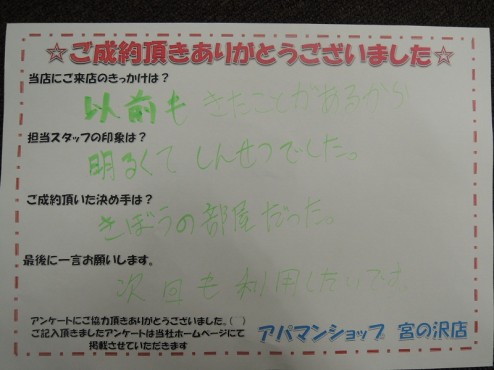 ☆ご成約頂きありがとうございました☆
当店にご来店のきっかけは？
以前もきたことがあるから
担当スタッフの印象は？
明るくてしんせつでした。
ご成約頂いた決め手は？
きぼうの部屋だった。
最後に一言お願いします。
次回も利用したいです。
アンケートにご協力頂きありがとうございました。(￣ー￣)
ご記入頂きましたアンケートは当社ホームページにて
掲載させていただきます
アパマンショップ 宮の沢店